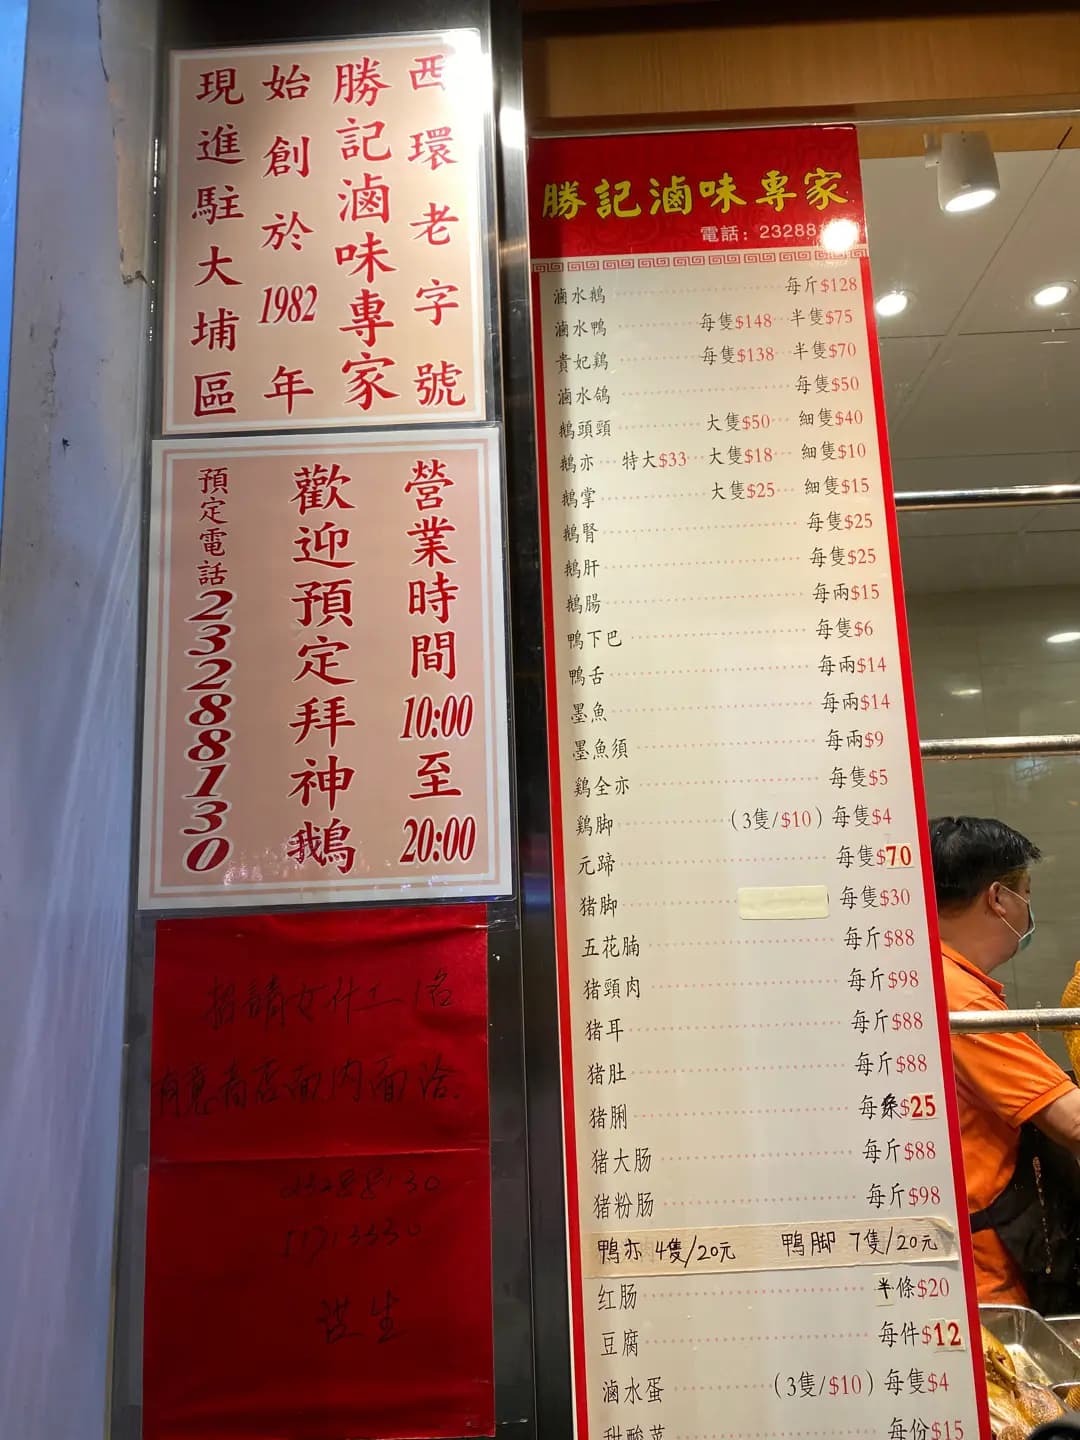 西環老字號
勝記滷味專家
始創於1982年
現進駐大埔區
營業時間10:00至20:00
歡迎預定拜神鵝
預定電話23288130
招請女什工1名
有意者店面內面洽.
23288130
洪生
勝記滷味專家
電話: 23288
滷水鵝 每斤$128
滷水鴨 每隻$148 半隻$75
貴妃鷄 每隻$138 半隻$70
滷水鴿 每隻$50
鵝頭頸 大隻$50 細隻$40
鵝亦 特大$33 大隻$18 細隻$10
鵝掌 大隻$25 細隻$15
鵝腎 每隻$25
鵝肝 每隻$25
鵝腸 每兩$15
鴨下巴 每隻$6
鴨舌 每兩$14
墨魚 每兩$14
墨魚須 每兩$9
鷄全亦 每隻$5
鷄脚 (3隻/$10) 每隻$4
元蹄 每隻$70
猪脚 每隻$30
五花腩 每斤$88
猪頸肉 每斤$98
猪耳 每斤$88
猪肚 每斤$88
猪脷 每条$25
猪大肠 每斤$88
猪粉肠 每斤$98
鴨亦 4隻/20元 鴨脚 7隻/20元
红肠 半條$20
豆腐 每件$12
滷水蛋 (3隻/$10) 每隻$4
甜酸菜 每份$15